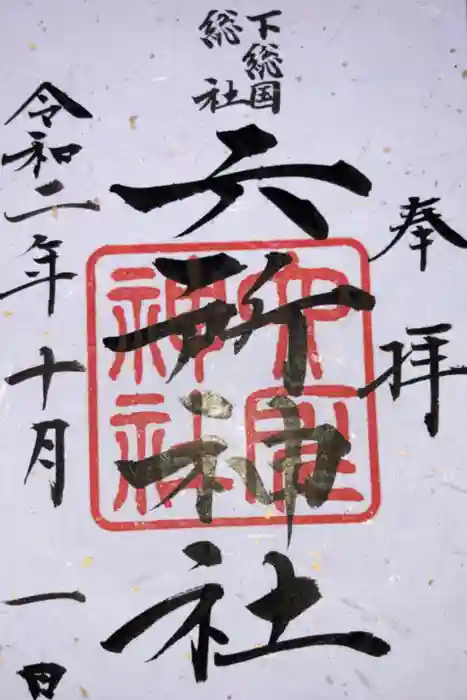 奉拝
下総国
総社
六所神社
六所
神社
令和二年十月一日